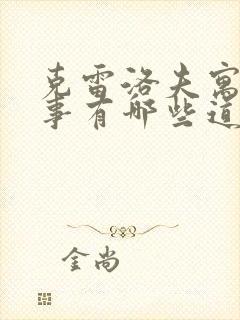 克雷洛夫寓
事有哪些道
金尚